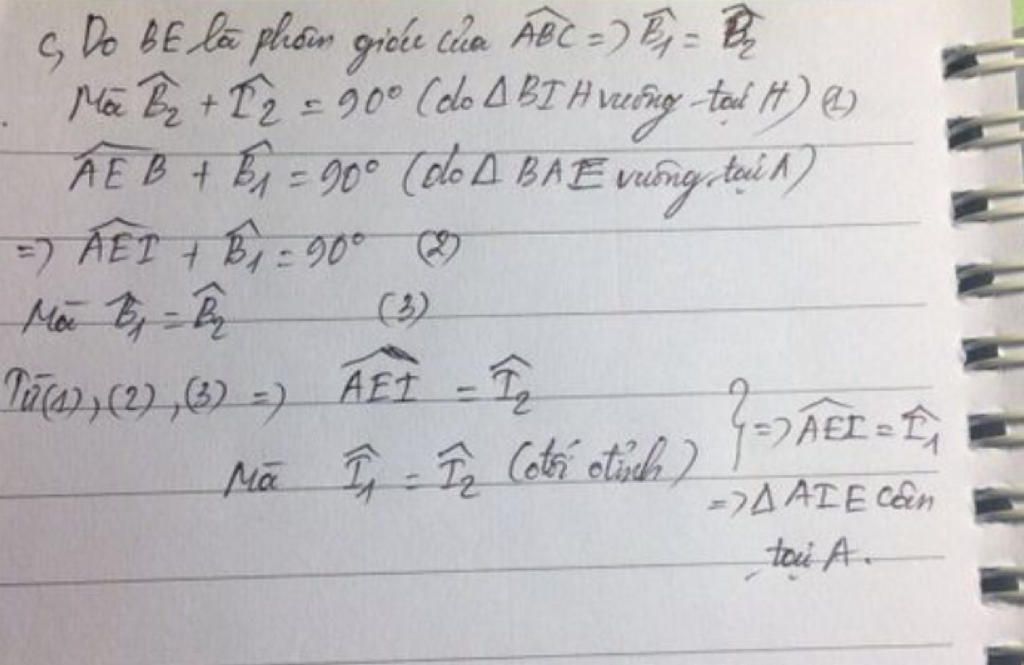 c, Do BE là phân giác của \widehat{ABC} => \widehat{B}_1 = \widehat{B}_2
Mà \widehat{B}_2 + \widehat{I}_2 = 90° (do Δ BIH vuông tại H) (1)
\widehat{AEB} + \widehat{B}_1 = 90° (do Δ BAE vuông tại A)
=> \widehat{AEI} + \widehat{B}_1 = 90° (2)
Mà \widehat{B}_1 = \widehat{B}_2 (3)
Từ (1), (2), (3) => \widehat{AEI} = \widehat{I}_2
Mà \widehat{I}_1 = \widehat{I}_2 (đối đỉnh)
} => \widehat{AEI} = \widehat{I}_1
=> Δ AIE cân
tại A.